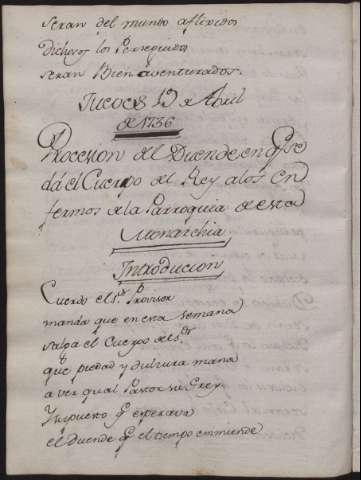 seran del mundo aflixidos
dichosos los Perseguidos
seran Bienaventurados.
Jueves 19 de Abril
de 1736
Procesion del Duende en q.e se
dá el Cuerpo del Rey alos en
fermos de la Parroquia de esta
Monarchia
Introducion
Cuerdo el s.r Provisor
manda que en esta semana
salga el Cuerpo del s.or
que piedad y dulzura mana
a ver qual Pastor su Grey.
Y supuesto q.e esperava
el duende q.e el tiempo enmiende